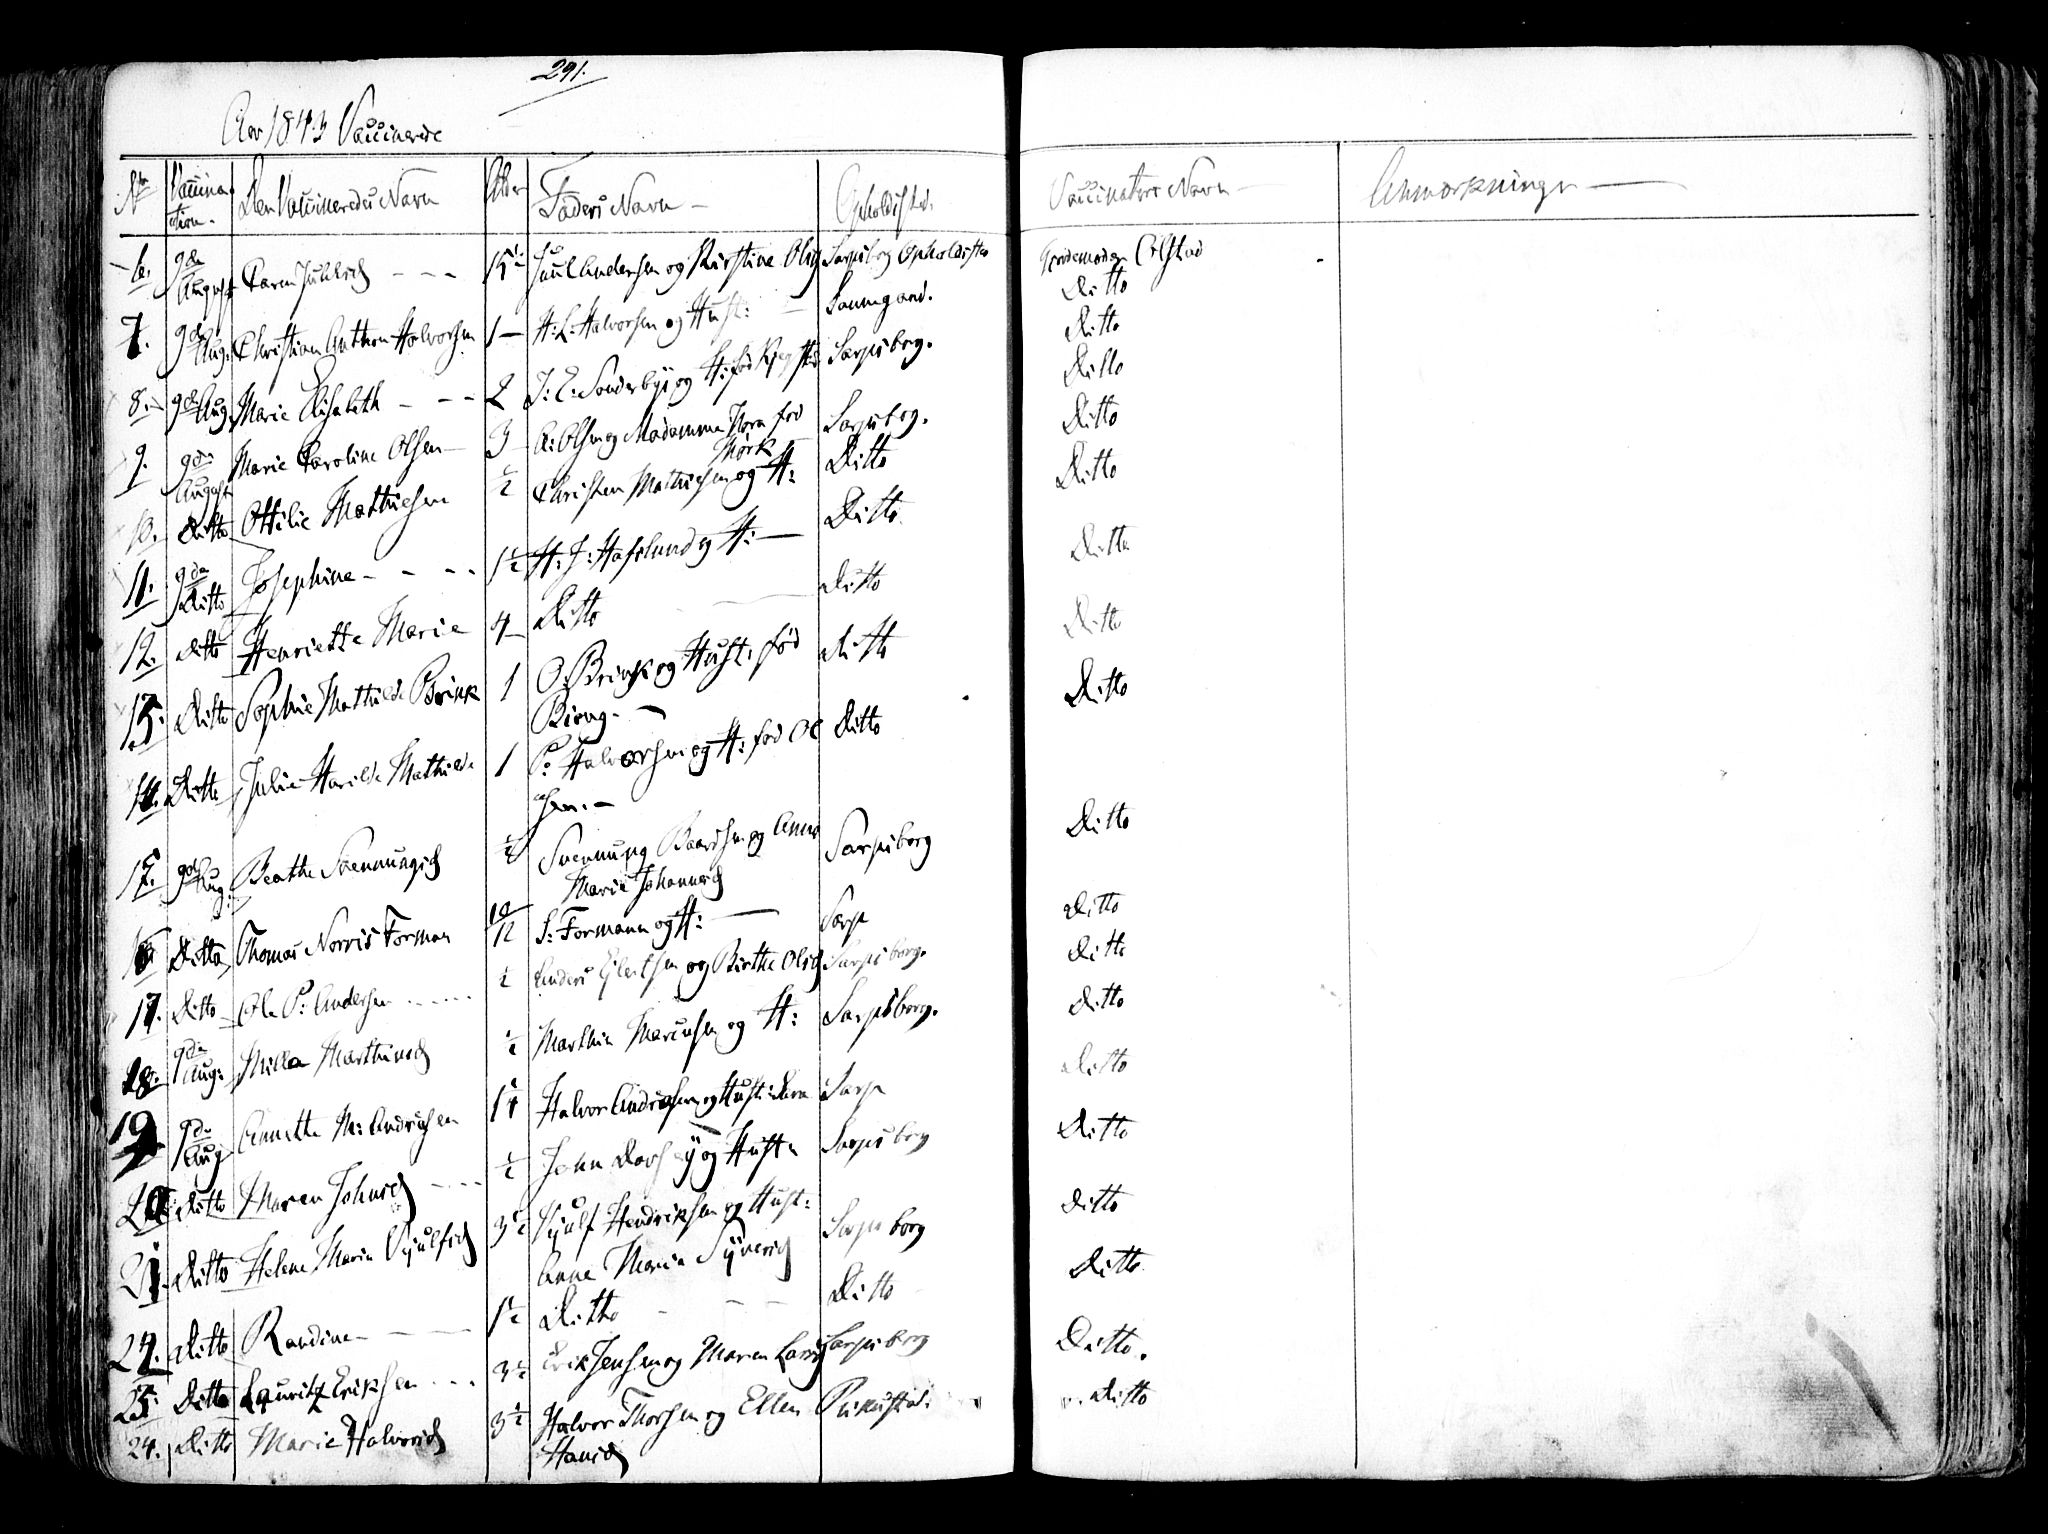 291.
Aar 1843 Vaccinerede
No Vaccina- tion. Den Vaccineredes Navn Alder Faders Navn Opholdsted. Vaccinateurs Navn Anmærkninger
6. 9de August Karen Juhlsd 1½ Juul Andersen og Kirstine Olsd Sarpsborg Opholdsted Gjordemoder Olstad
7. 9de Aug: Christian Anthon Halvorsen 1 H: L: Halvorsen og Hust: Ditto
8. 9de Aug. Marie Elisabeth 2 J: E: Sonderbye og H: fød Sarpsborg. Ditto
9. 9de August Marie Caroline Olsen 3 A: Olsen og Madamme fød Mørk Sarpsborg. Ditto
10. Ditto Ottilie Mathiesen ½ Christen Mathiesen og H: Ditto Ditto
11. 9de Ditto Josephine 1½ H: J: Hafslund og H: Ditto Ditto
12. Ditto Henriette Marie 4 Ditto Ditto Ditto
13. Ditto Sophie Mathilde Brink 1 O. Brink og Hust. fød Ditto Ditto
14. Ditto Julie Harilde Mathilde 1 P: Halvorsen og H: fød Ol sen. Ditto Ditto
15. 9de Aug: Beathe Svennungsd ½ Svennung Baardsen og Anne Maria Johannesd Sarpsborg Ditto
16 Ditto Thomas Norris Forman 10/12 S: Formann og H: Sarp Ditto
17. Ditto Ole P: Andersen ½ Anders Eilertsen og Birthe Olsd Sarpsborg. Ditto
18. 9de Aug: Milla Marthinsd ½ Marthin Mariusen og H: Sarpsborg. Ditto
19 9de Aug Annette M: Andresen 1¼ Halvor Andresen og Hust: Sarp Ditto
20 Ditto Maren Johnsd ½ John og Hust: Sarpsborg Ditto
21. Ditto Helene Maria 3½ Hendriksen og Hust: Anne Maria Syversd Sarpsborg Ditto
22. Ditto Randine 1½ Ditto Ditto Ditto
23. Ditto Lauritz Eriksen 3½ Erik Jensen og Maren Larsd Sarpsborg Ditto.
24. Ditto Marie Halvorsd 3½ Halvor Thorsen og Ellen Hansd Ditto